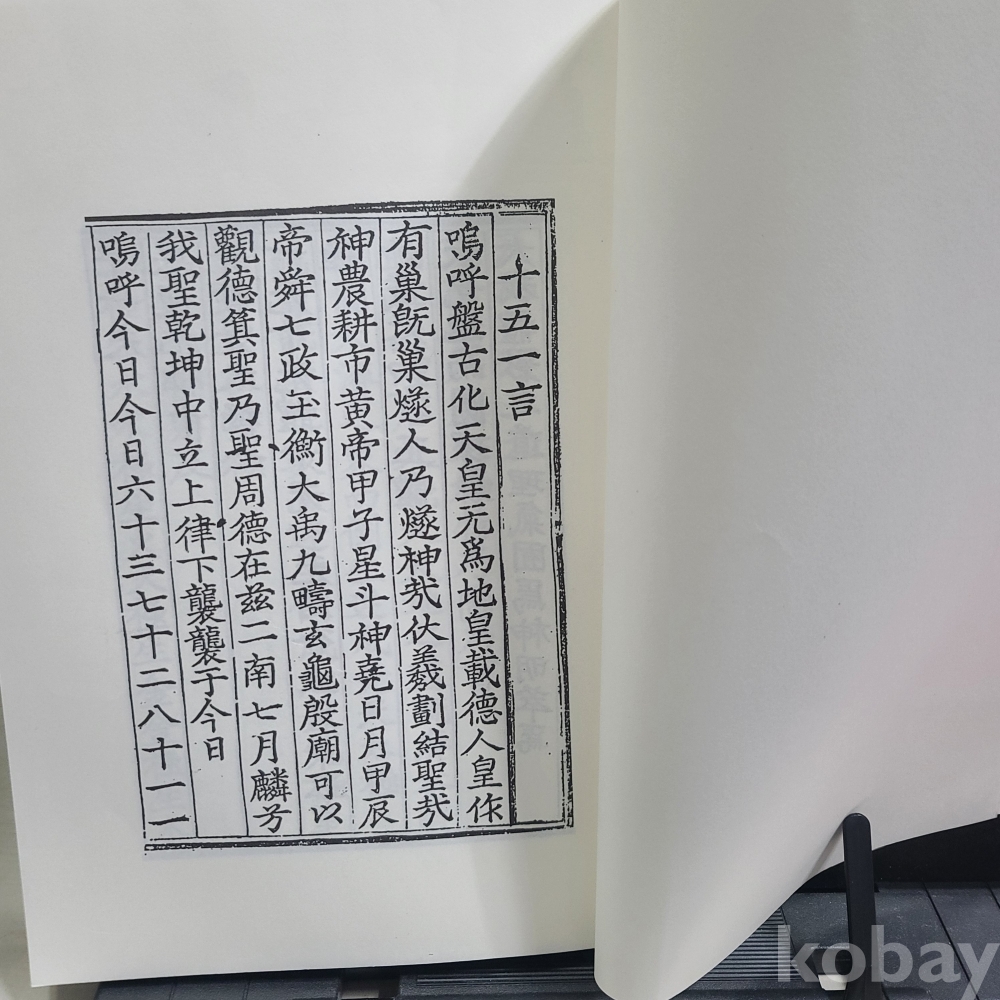 十五一言
嗚呼盤古化天皇无爲地皇載德人皇作
有巢旣巢燧人乃燧神哉伏羲劃結聖哉
神農耕市黃帝甲子星斗神堯日月甲辰
帝舜七政玉衡大禹九疇玄龜殷廟可以
觀德箕聖乃聖周德在玆二南七月麟兮
我聖乾坤中立上律下襲襲于今日
嗚呼今日今日六十三七十二八十一一
kobay